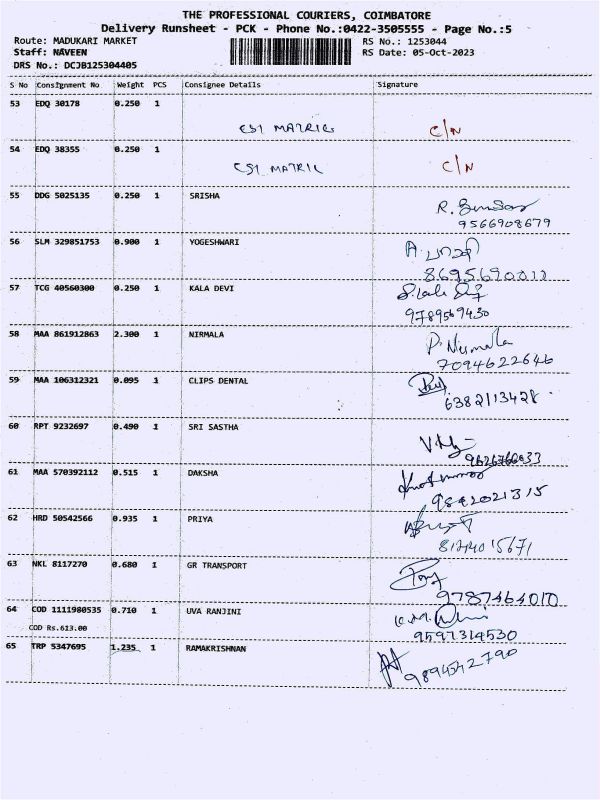 THE PROFESSIONAL COURIERS, COIMBATORE
Delivery Runsheet - PCK - Phone No.:0422-3505555 - Page No.:5
Route: MADUKARI MARKET RS No.: 1253044
Staff: NAVEEN RS Date: 05-Oct-2023
DRS No.: DCJB125304405
S No Consignment No Weight PCS Consignee Details Signature
53 EDQ 30178 0.250 1
CSI MATRIC C/N
54 EDQ 38355 0.250 1
CSI MATRIC C/N
55 DDG 5025135 0.250 1 SRISHA
R.
9566908679
56 SLM 329851753 0.900 1 YOGESHWARI
A.
57 TCG 40560300 0.250 1 KALA DEVI
9789569430
58 MAA 861912863 2.300 1 NIRMALA
P. Nirmala
7094622646
59 MAA 106312321 0.095 1 CLIPS DENTAL
6382113428
60 RPT 9232697 0.490 1 SRI SASTHA
61 MAA 570392112 0.515 1 DAKSHA
9842021315
62 HRD 50542566 0.935 1 PRIYA
63 NKL 8117270 0.680 1 GR TRANSPORT
9787464010
64 COD 1111980535 0.710 1 UVA RANJINI
COD Rs.613.00
9597314530
65 TRP 5347695 1.235 1 RAMAKRISHNAN
9894542790